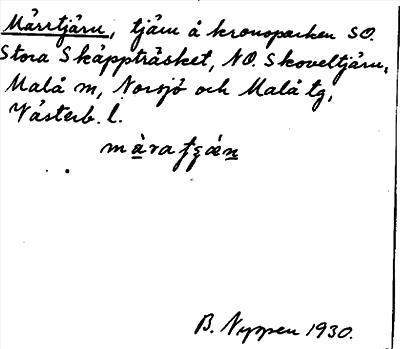 Märrtjärn, tjärn å kronoparken SO.
Stora Skäppträsket, NO. Skoveltjärn,
Malå m, Norsjö och Malå tg,
Västerb. l.
B. Nyppen 1930.